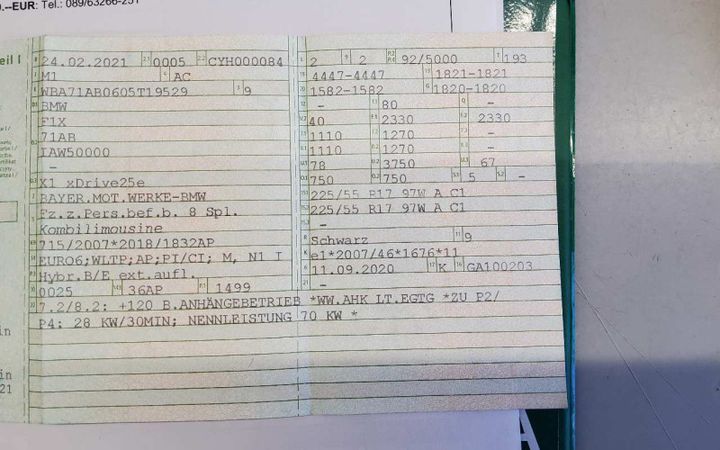 .--EUR: Tel.: 089/63266-251
eil I
24.02.2021 0005 CYH000084
M1 AC
WBA71AB0605T19529 9
BMW
F1X
71AB
IAW50000
-
X1 xDrive25e
BAYER.MOT.WERKE-BMW
Fz.z.Pers.bef.b. 8 Spl.
Kombilimousine
715/2007*2018/1832AP
EURO6;WLTP;AP;PI/CI; M, N1 I
Hybr.B/E ext.aufl.
0025 36AP 1499
7.2/8.2: +120 B.ANHÄNGEBETRIEB *WW.AHK LT.EGTG *ZU P2/
P4: 28 KW/30MIN; NENNLEISTUNG 70 KW *
2 2 92/5000 193
4447-4447 1821-1821
1582-1582 1820-1820
- 80 -
40 2330 2330
1110 1270 -
1110 1270 -
78 3750 67
750 750 5 -
225/55 R17 97W A C1
225/55 R17 97W A C1
-
Schwarz 9
e1*2007/46*1676*11
11.09.2020 K GA100203
-
in
in
21